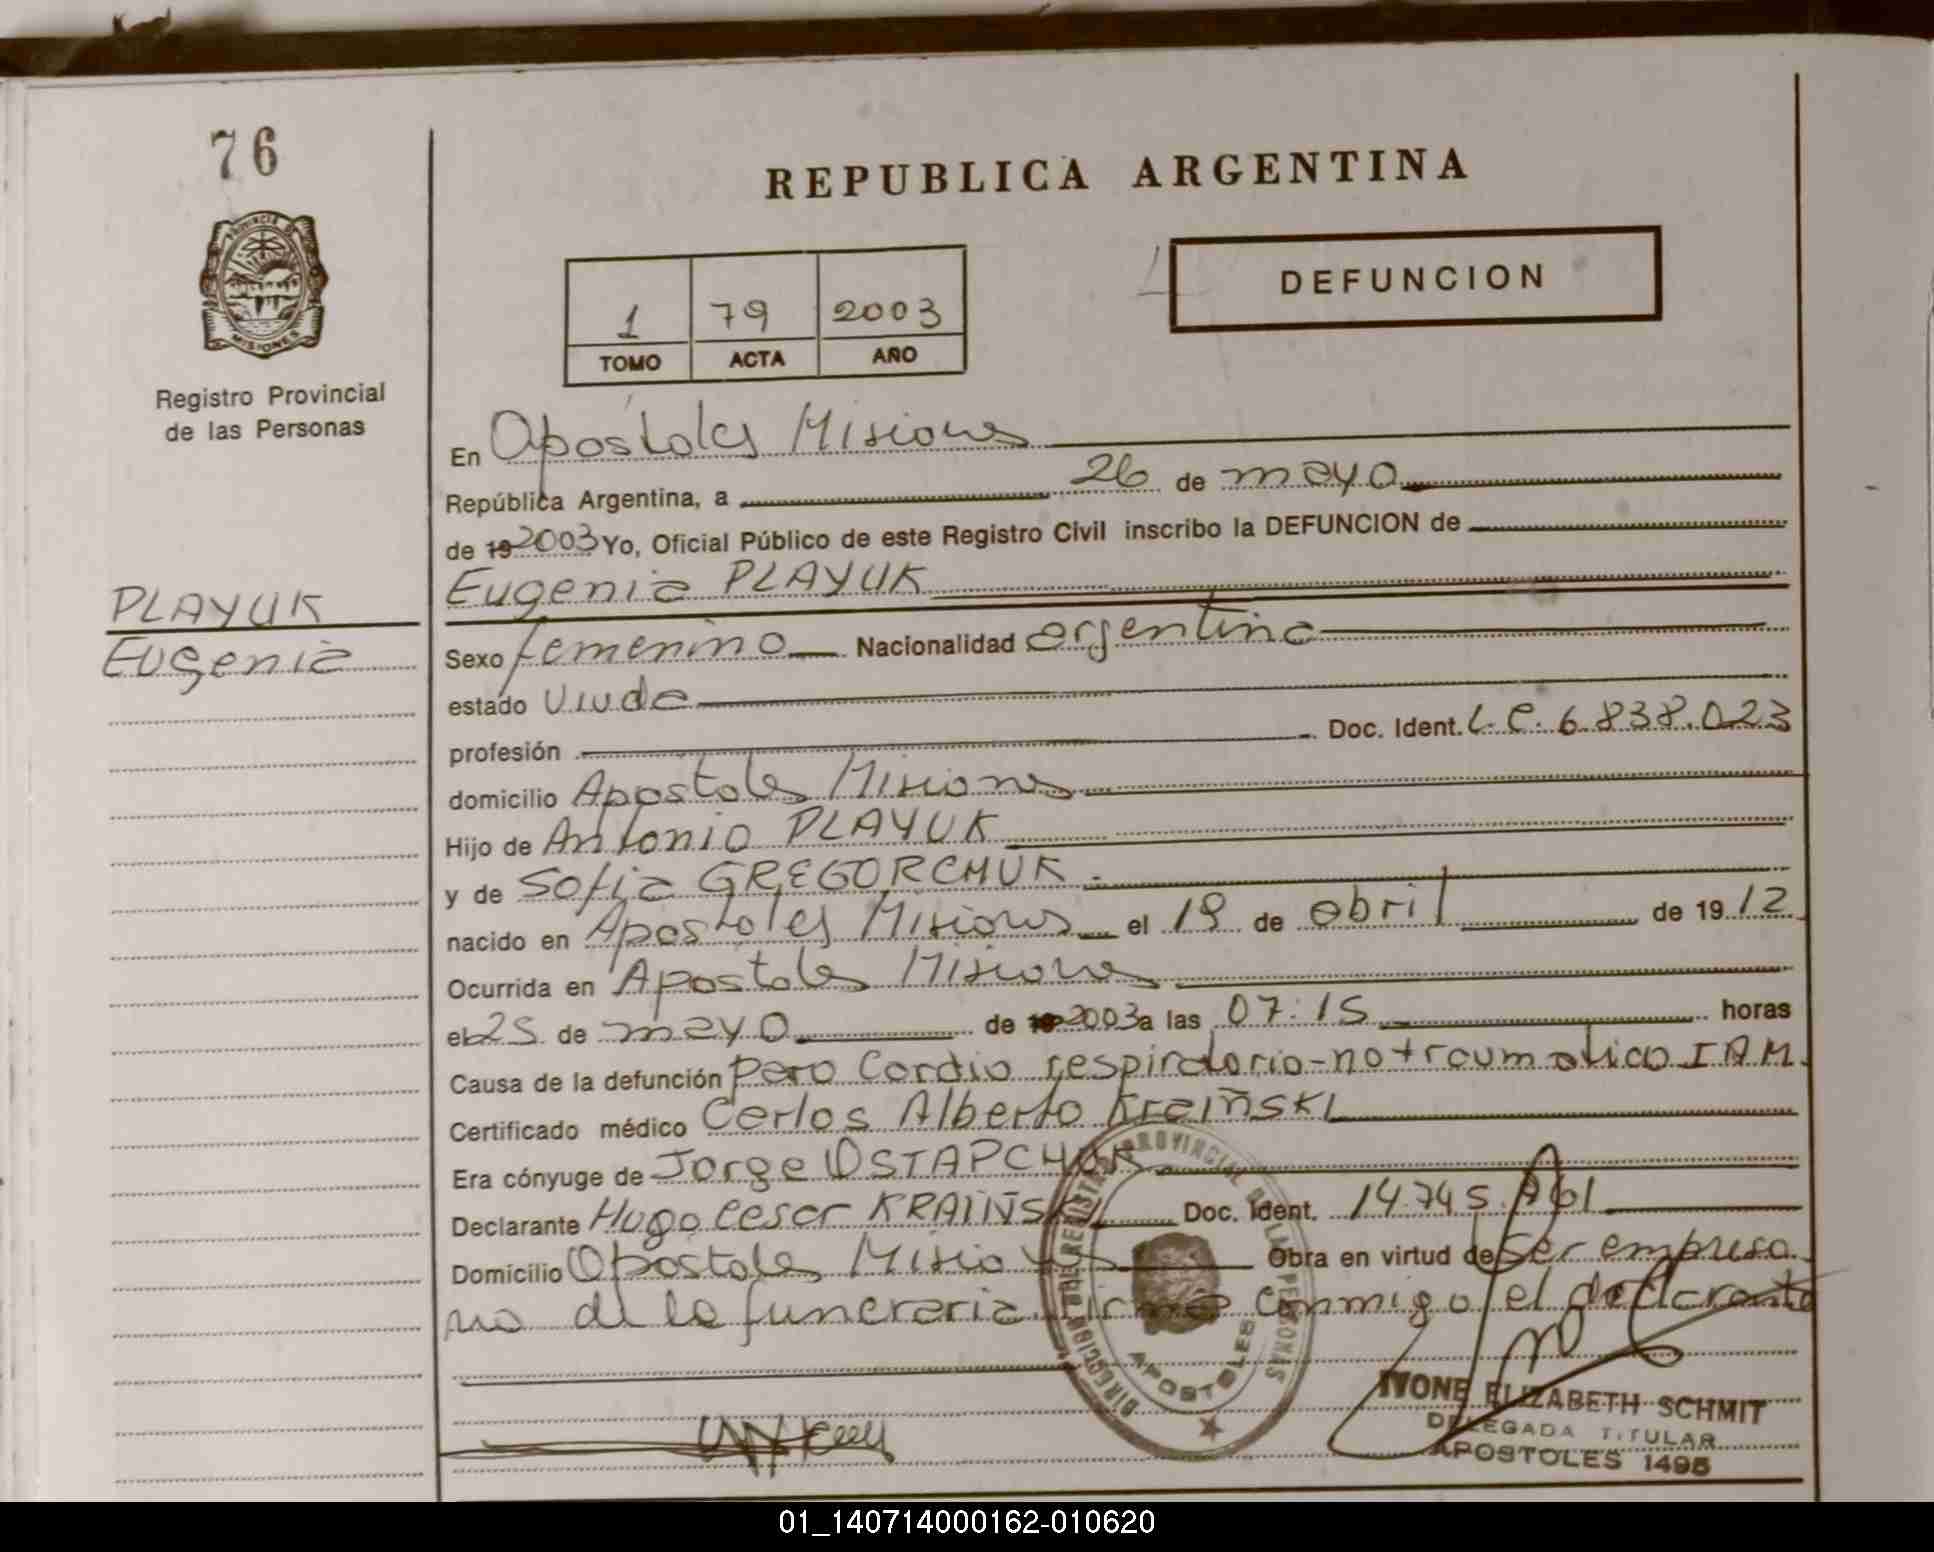 76
REPUBLICA ARGENTINA
PROVINCIA DE
MISIONES
DEFUNCION
1 79 2003
TOMO ACTA AÑO
Registro Provincial
de las Personas
En Apóstoles Misiones
República Argentina, a 26 de mayo
de 19 2003 Yo, Oficial Público de este Registro Civil inscribo la DEFUNCION de
Eugenia PLAYUK
PLAYUK
Eugenia
Sexo femenino Nacionalidad argentina
estado Viuda
profesión Doc. Ident. L.C. 6.838.023
domicilio Apóstoles Misiones
Hijo de Antonio PLAYUK
y de Sofia GREGORCHUK
nacido en Apóstoles Misiones el 19 de abril de 1912
Ocurrida en Apóstoles Misiones
el 25 de mayo de 19 2003 a las 07:15 horas
Causa de la defunción paro cardio respiratorio-no traumatico I.A.M.
Certificado médico Carlos Alberto Kraiñski
Era cónyuge de Jorge OSTAPCHUK
Declarante Hugo Cesar KRAIÑSKI Doc. Ident. 14.745.
Domicilio Apóstoles Misiones Obra en virtud de ser empresa
rio de la funeraria. Conmigo el declarante
DIRECCION DEL REGISTRO PROVINCIAL DE LAS PERSONAS
APOSTOLES
IVONE ELIZABETH SCHMIT
DELEGADA TITULAR
APOSTOLES 1495
01_140714000162-010620